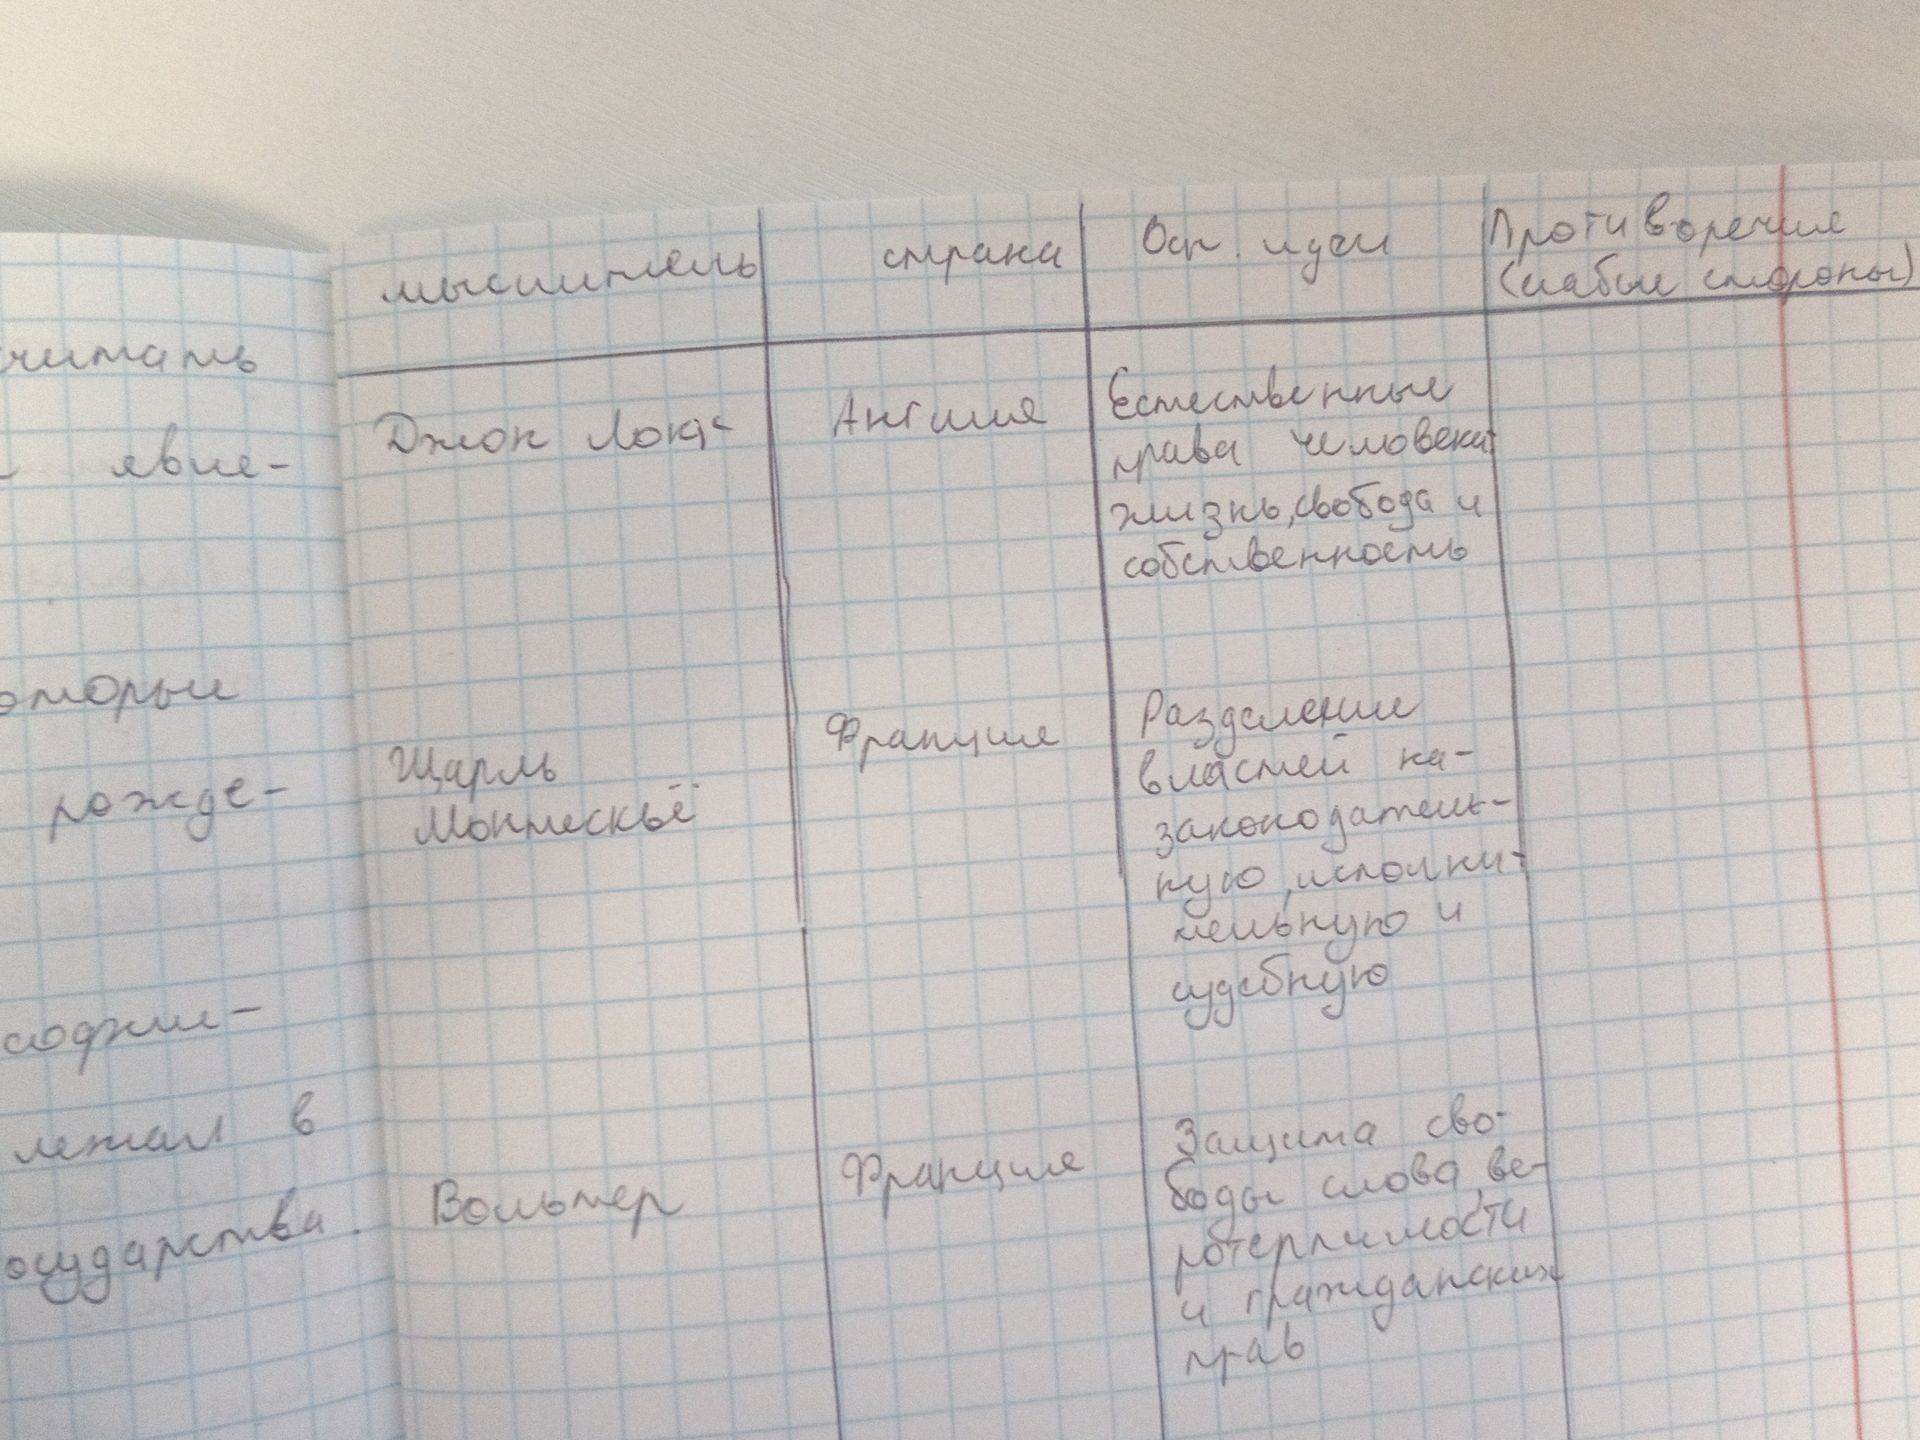 читать
явле-
оторые
рожде-
лежал в
осударства.
мыслитель
страна
Осн. идеи
Противоречия
(слабые стороны)
Джон Локк
Англия
Естественные
права человека:
жизнь, свобода и
собственность
Шарль
Монтескьё
Франция
Разделение
властей на-
законодатель-
ную, исполни-
тельную и
судебную
Вольтер
Франция
Защита сво-
боды слова, ве-
ротерпимости
и гражданских
прав